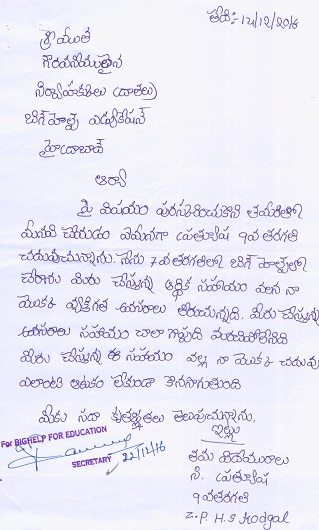 తేది:- 14/12/2016
శ్రీయుత
గౌరవనీయులైన
నిర్వాహకులు (దాతలు)
బిగ్ హెల్ప్ ఎడ్యుకేషన్
హైదాబాద్
ఆర్యా
పై విషయం పురస్కరించుకొని తమరితో
మనవి చేయడం ఏమనగా ప్రత్యూష 9వ తరగతి
చదువుచున్నాను. నేను 7వ తరగతిలో బిగ్ హెల్ప్ లో
చేరాను మీరు చేస్తున్న ఆర్థిక సహాయం వలన నా
యొక్క వ్యక్తిగత అవసరాలు తీరుచున్నది. మీరు చేస్తున్న
సహాయం చాలా గొప్పది మరువలేనిది
మీరు చేస్తున్న ఈ సహాయం వల్ల నా యొక్క చదువు
ఎలాంటి ఆటంకం లేకుండా కొనసాగుతుంది
మీకు సదా కృతజ్ఞతలు తెలుపుచున్నాను.
ఇట్లు
For BIGHELP FOR EDUCATION
SECRETARY 22/12/16
తమ విదేయురాలు
సి. ప్రత్యూష
9వ తరగతి
Z.P.H.S Modgal